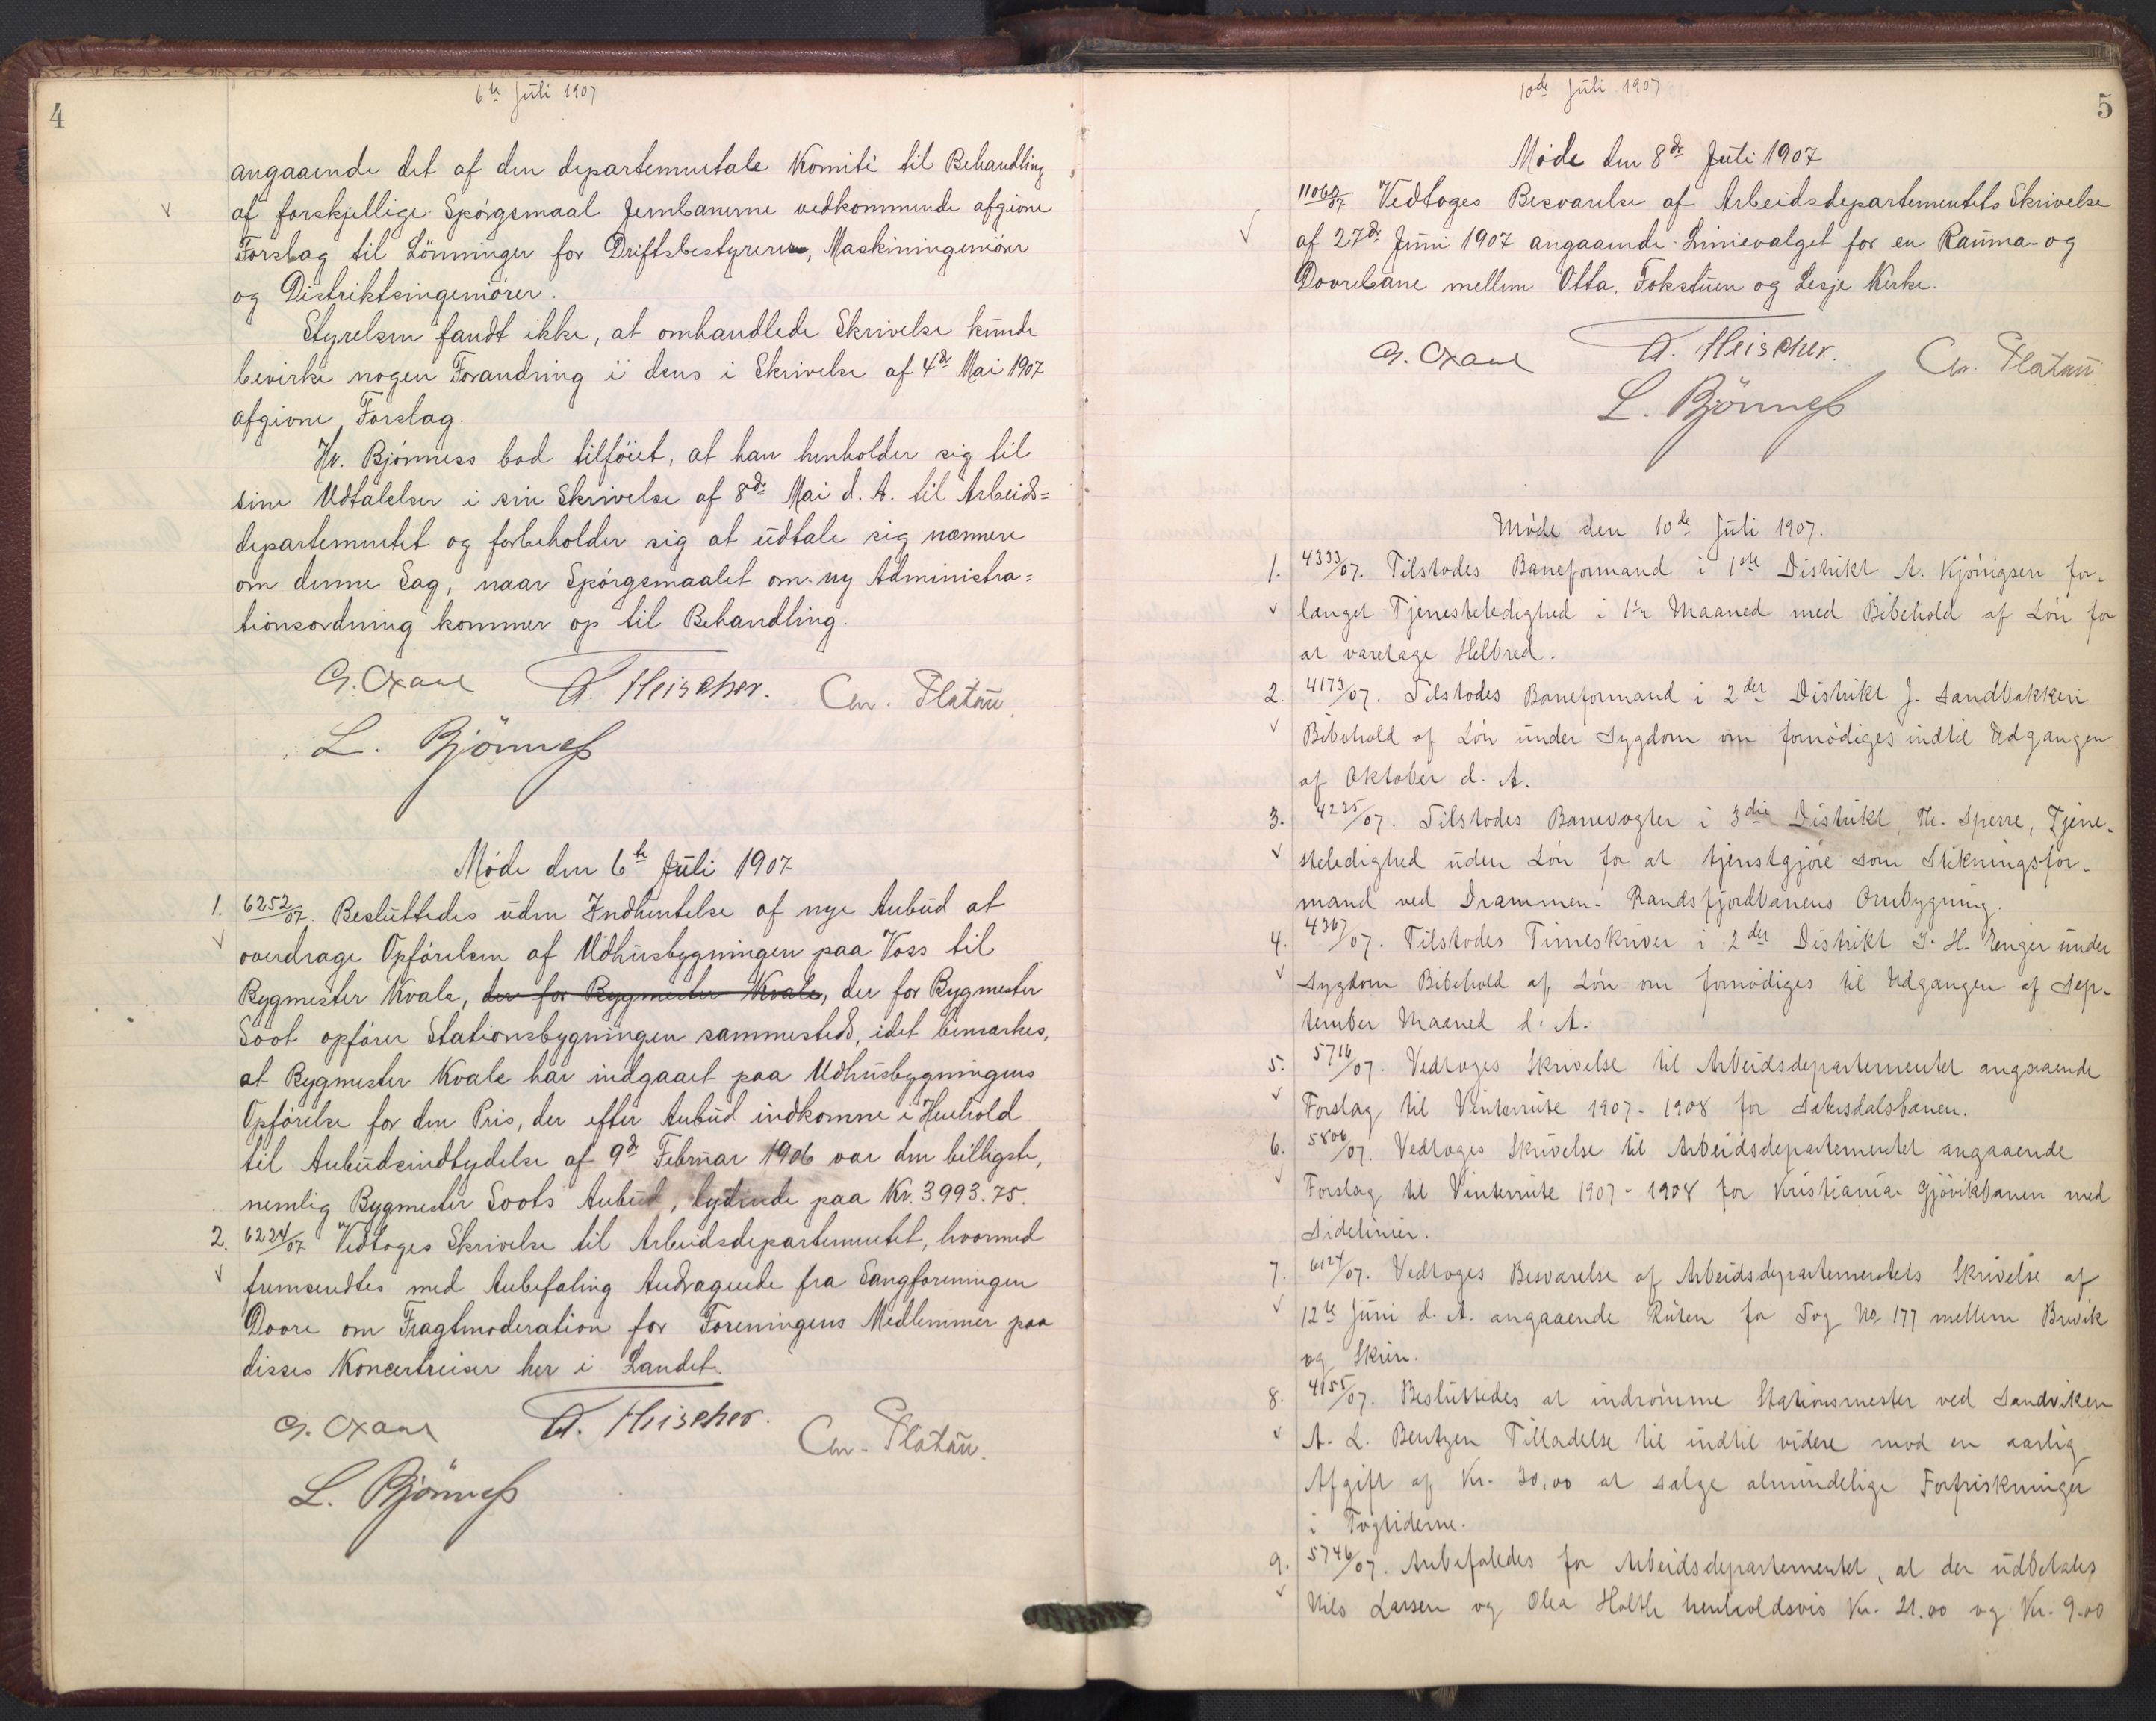 4
6te Juli 1907
angaaende det af den departementale Komite til Behandling
af forskjellige Spørgsmaal Jernbanerne vedkommende afgivne
Forslag til Lønninger for Driftsbestyrere, Maskiningeniører
og Distriktsingeniører.
Styrelsen fandt ikke, at omhandlede Skrivelse kunde
bevirke nogen Forandring i dens i Skrivelse af 4de Mai 1907
afgivne Forslag.
Hr. Bjønness bad tilføiet, at han henholder sig til
sine Udtalelser i sin Skrivelse af 8de Mai d. A. til Arbeids=
departementet og forbeholder sig at udtale sig nærmere
om denne Sag, naar Spørgsmaalet om ny Administra=
tionsordning kommer op til Behandling.
G. Oxaal A. Fleischer. Chr. Platou
L. Bjønness
Møde den 6te Juli 1907
1. 6252/07. Besluttedes uden Indhentelse af nye Anbud at
overdrage Opførelsen af Udhusbygningen paa Voss til
Bygmester Kvale, der for Bygmester Kvale, der for Bygmester
Soot opfører Stationsbygningen sammesteds, idet bemærkes,
at Bygmester Kvale har indgaaet paa Udhusbygningens
Opførelse for den Pris, der efter Anbud indkomne i Henhold
til Anbudsindbydelse af 9de Februar 1906 var den billigste,
nemlig Bygmester Soots Anbud, lydende paa Kr. 3993.75.
2. 6224/07 Vedtoges Skrivelse til Arbeidsdepartementet, hvormed
fremsendtes med Anbefaling Andragende fra Sangforeningen
Dovre om Fragtmoderation for Foreningens Medlemmer paa
disses Koncertreiser her i Landet.
G. Oxaal A. Fleischer. Chr. Platou.
L. Bjønness
5
10de Juli 1907
Møde den 8de Juli 1907
11060/07 Vedtoges Besvarelse af Arbeidsdepartementets Skrivelse
af 27de Juni 1907 angaaende Linievalget for en Rauma- og
Dovrebane mellem Otta, Fokstuen og Lesje Kirke.
G. Oxaal A. Fleischer. Chr. Platou
L. Bjønness
Møde den 10de Juli 1907.
1. 4333/07. Tilstodes Baneformand i 1ste Distrikt A. Kjønigsen for-
længet Tjenesteledighed i 1 Maaned med Bibehold af Løn for
at varetage Helbred.
2. 4173/07. Tilstodes Baneformand i 2det Distrikt J. Sandbakken
Bibehold af Løn under Sygdom om fornødiges indtil Udgangen
af Oktober d. A.
3. 4225/07. Tilstodes Banevogter i 3die Distrikt, Th. Sperre, Tjene-
steledighed uden Løn for at tjenstgjøre som Stikningsfor-
mand ved Drammen-Randsfjordbanens Ombygning.
4. 4367/07. Tilstodes Timeskriver i 2det Distrikt J. H. Enger under
Sygdom Bibehold af Løn om fornødiges til Udgangen af Sep-
tember Maaned d. A.
5. 5716/07. Vedtoges Skrivelse til Arbeidsdepartementet angaaende
Forslag til Vinterrute 1907-1908 for Sætersdalsbanen.
6. 5806/07. Vedtoges Skrivelse til Arbeidsdepartementet angaaende
Forslag til Vinterrute 1907-1908 for Kristiania-Gjøvikbanen med
Sidelinier.
7. 6124/07. Vedtoges Besvarelse af Arbeidsdepartementets Skrivelse af
12te Juni d. A. angaaende Ruten for Tog No 177 mellem Brevik
og Skien.
8. 4155/07. Besluttedes at indrømme Stationsmester ved Sandviken
A. L. Bentzen Tilladelse til indtil videre mod en aarlig
Afgift af Kr. 30.00 at sælge almindelige Forfriskninger
i Togtiderne.
9. 5746/07. Anbefaledes for Arbeidsdepartementet, at der udbetales
Nils Larsen og Olea Holtli henholdsvis Kr. 21.00 og Kr. 9.00